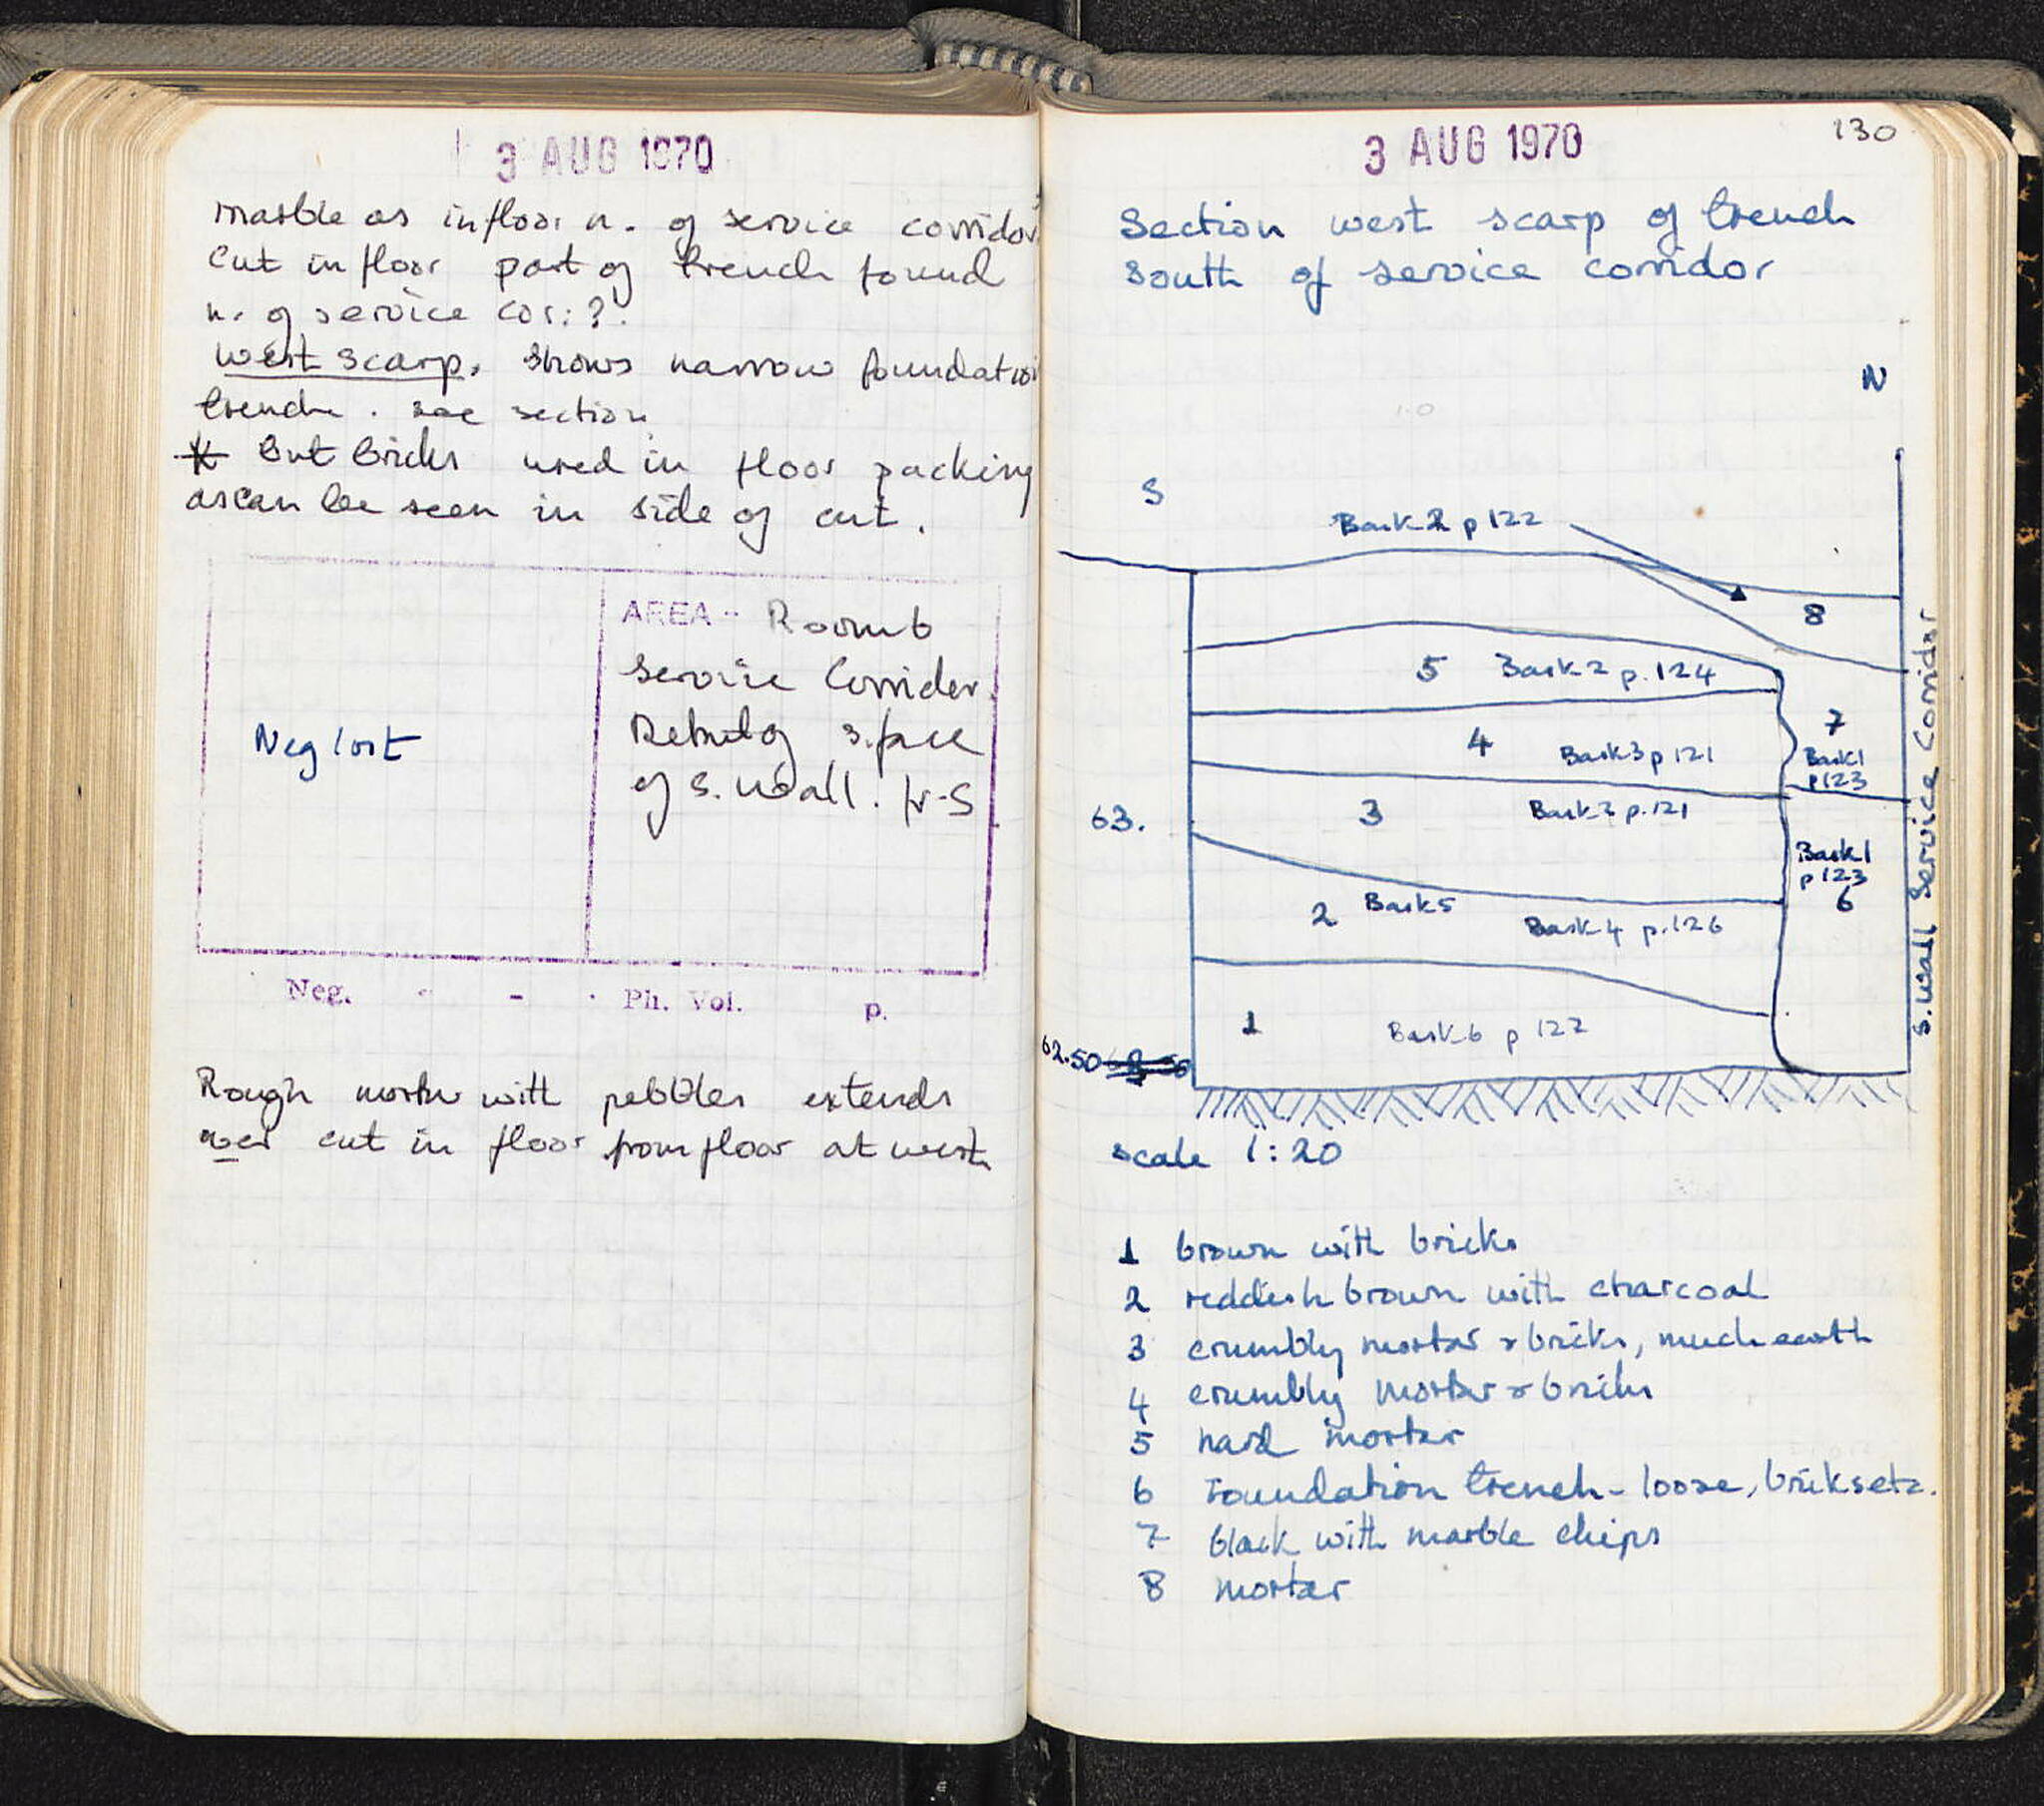 3 AUG 1970
marble as in floor n. of service corridor
Cut in floor part of trench found
n. of service cor: ?.
West scarp. Shows narrow foundation
trench. see section
* but bricks used in floor packing
as can be seen in side of cut.
Neg lost
AREA - Room 6
Service Corridor.
of S. Wall. N-S
Neg. - - . Ph. Vol. p.
Rough mortar with pebbles extends
over cut in floor from floor at west
3 AUG 1970
130
Section west scarp of trench
south of service corridor
N
S
Bask 2 p 122
8
5 Bask 2 p. 124
7
4 Bask 3 p 121
Bask 1
p 123
63.
3 Bask 2 p. 121
Bask 1
p 123
6
2 Bask 5
Bask 4 p. 126
1 Bask 6 p 122
62.50
S. Wall Service Corridor
scale 1:20
1 brown with bricks
2 reddish brown with charcoal
3 crumbly mortar & bricks, much earth
4 crumbly mortar & bricks
5 hard mortar
6 Foundation trench - loose, bricks etc.
7 black with marble chips
8 mortar